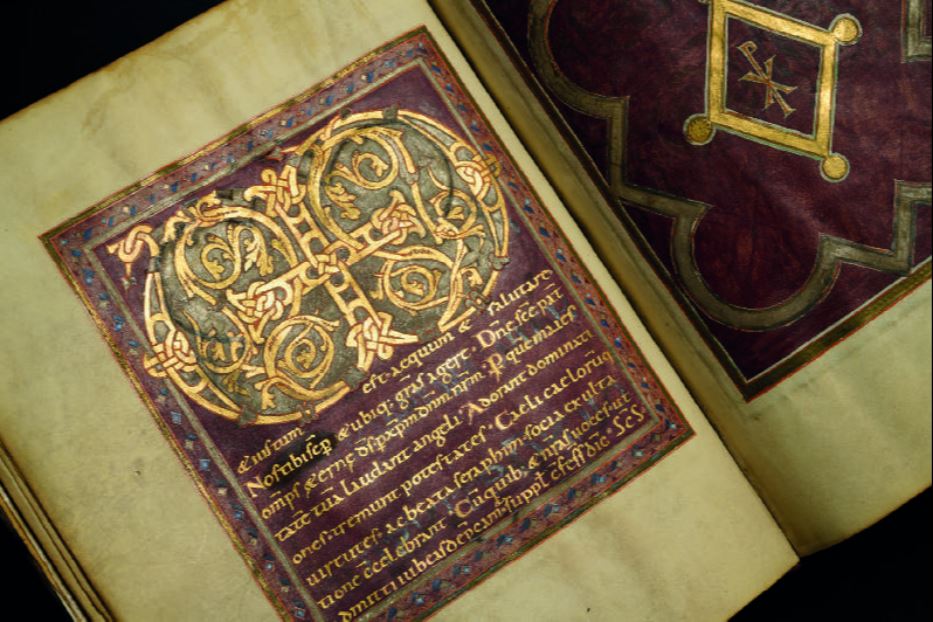 &iustum est aequum & salutare
Nos tibi semp̄ & ubiq; gr̄as agere. Dn̄e sc̄e pat̄
omp̄s &ernē d̄s p̄ xp̄m dn̄m nr̄m. P quē maies
tatē tuā laudant angeli. Adorant dominati
ones. tremunt potestates. Caeli caelorūq;
uirtutes. ac beata seraphim. socia exulta
tionē c̄celebrant. Cū quib; & nr̄as uoces. ut
admitti iubeas dep̄camur. suppl̄ c̄fess̄ dic̄. Sc̄s